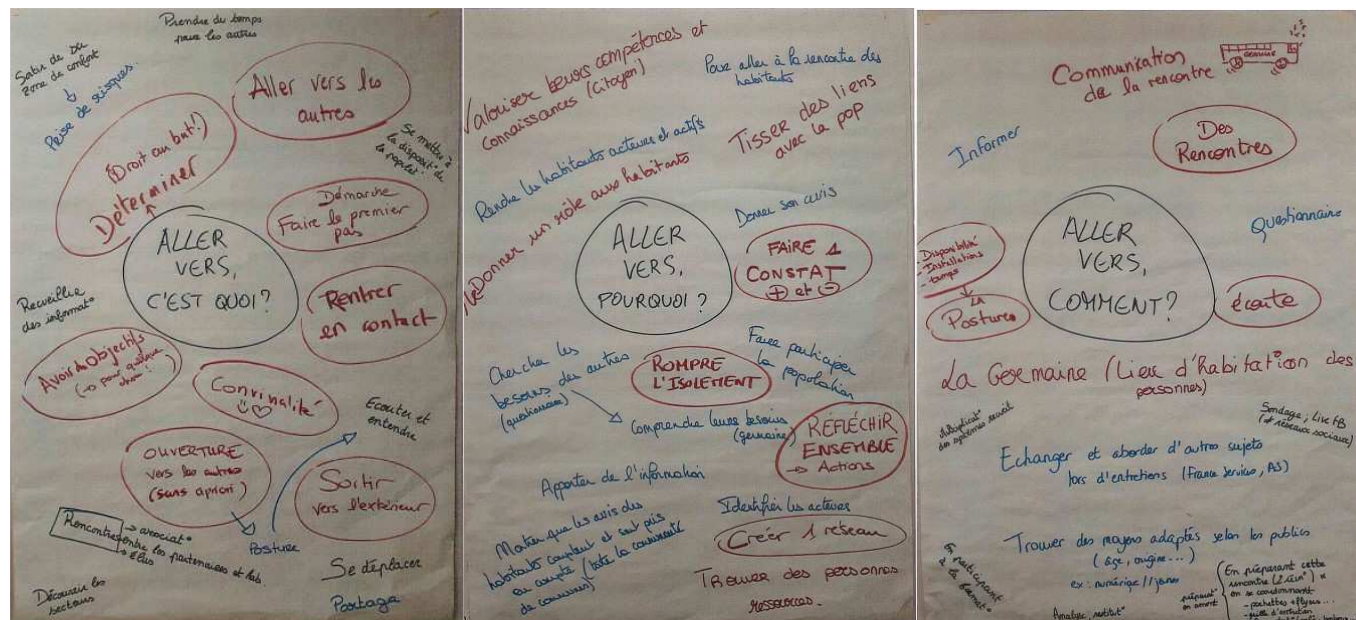 Prendre du temps
pour les autres
Sortir de sa
zone de confort
Prise de risques
Aller vers les
autres
(Droit au but!)
Déterminer
Se mettre à
la disposit° de
la populat°
Démarche
Faire le premier
pas
ALLER
VERS,
C'EST QUOI?
Rentrer
en contact
Recueillir
des informat°
Avoir des objectifs
(→ pour quelque
chose!
Convivialité
Ecouter et
entendre
OUVERTURE
vers les autres
(sans apriori)
Sortir
vers l'extérieur
Rencontres
→ associat°
entre les partenaires et hab
→ élus
Posture
Se déplacer
Partage
Découvrir les
secteurs
Valoriser leurs compétences et
connaissances (Citoyen)
Pour aller à la rencontre des
habitants
Rendre les habitants acteurs et actifs
Tisser des liens
avec la pop
Donner un rôle aux habitants
Donner son avis
ALLER
VERS,
POURQUOI?
FAIRE 1
CONSTAT
+ et -
Chercher les
besoins des autres
(questionnaire)
ROMPRE
L'ISOLEMENT
Faire participer
la population
Comprendre leurs besoins
(germaine)
RÉFLÉCHIR
ENSEMBLE
→ Actions
Apporter de l'information
Identifier les acteurs
Montrer que les avis des
habitants comptent et sont pris
en compte (toute la communauté
de communes)
Créer 1 réseau
Trouver des personnes
ressources.
Communication
de la rencontre
GERMAINE
Des
Rencontres
Informer
Questionnaire
- Disponibilité
- Installations
- temps
LA
Posture
ALLER
VERS,
COMMENT?
écoute
La Germaine (Lieu d'habitation des
personnes)
Sondage, Live FB
(# réseaux sociaux)
Echanger et aborder d'autres sujets
lors d'entretiens (France Services, AS)
Trouver des moyens adaptés selon les publics
(âge, origine...)
ex: numérique // jeunes
En participant
à la format°
préparat°
en amont
En préparant cette
rencontre
en se coordonnant
- pochettes + flyers...
Analyse, restitut°